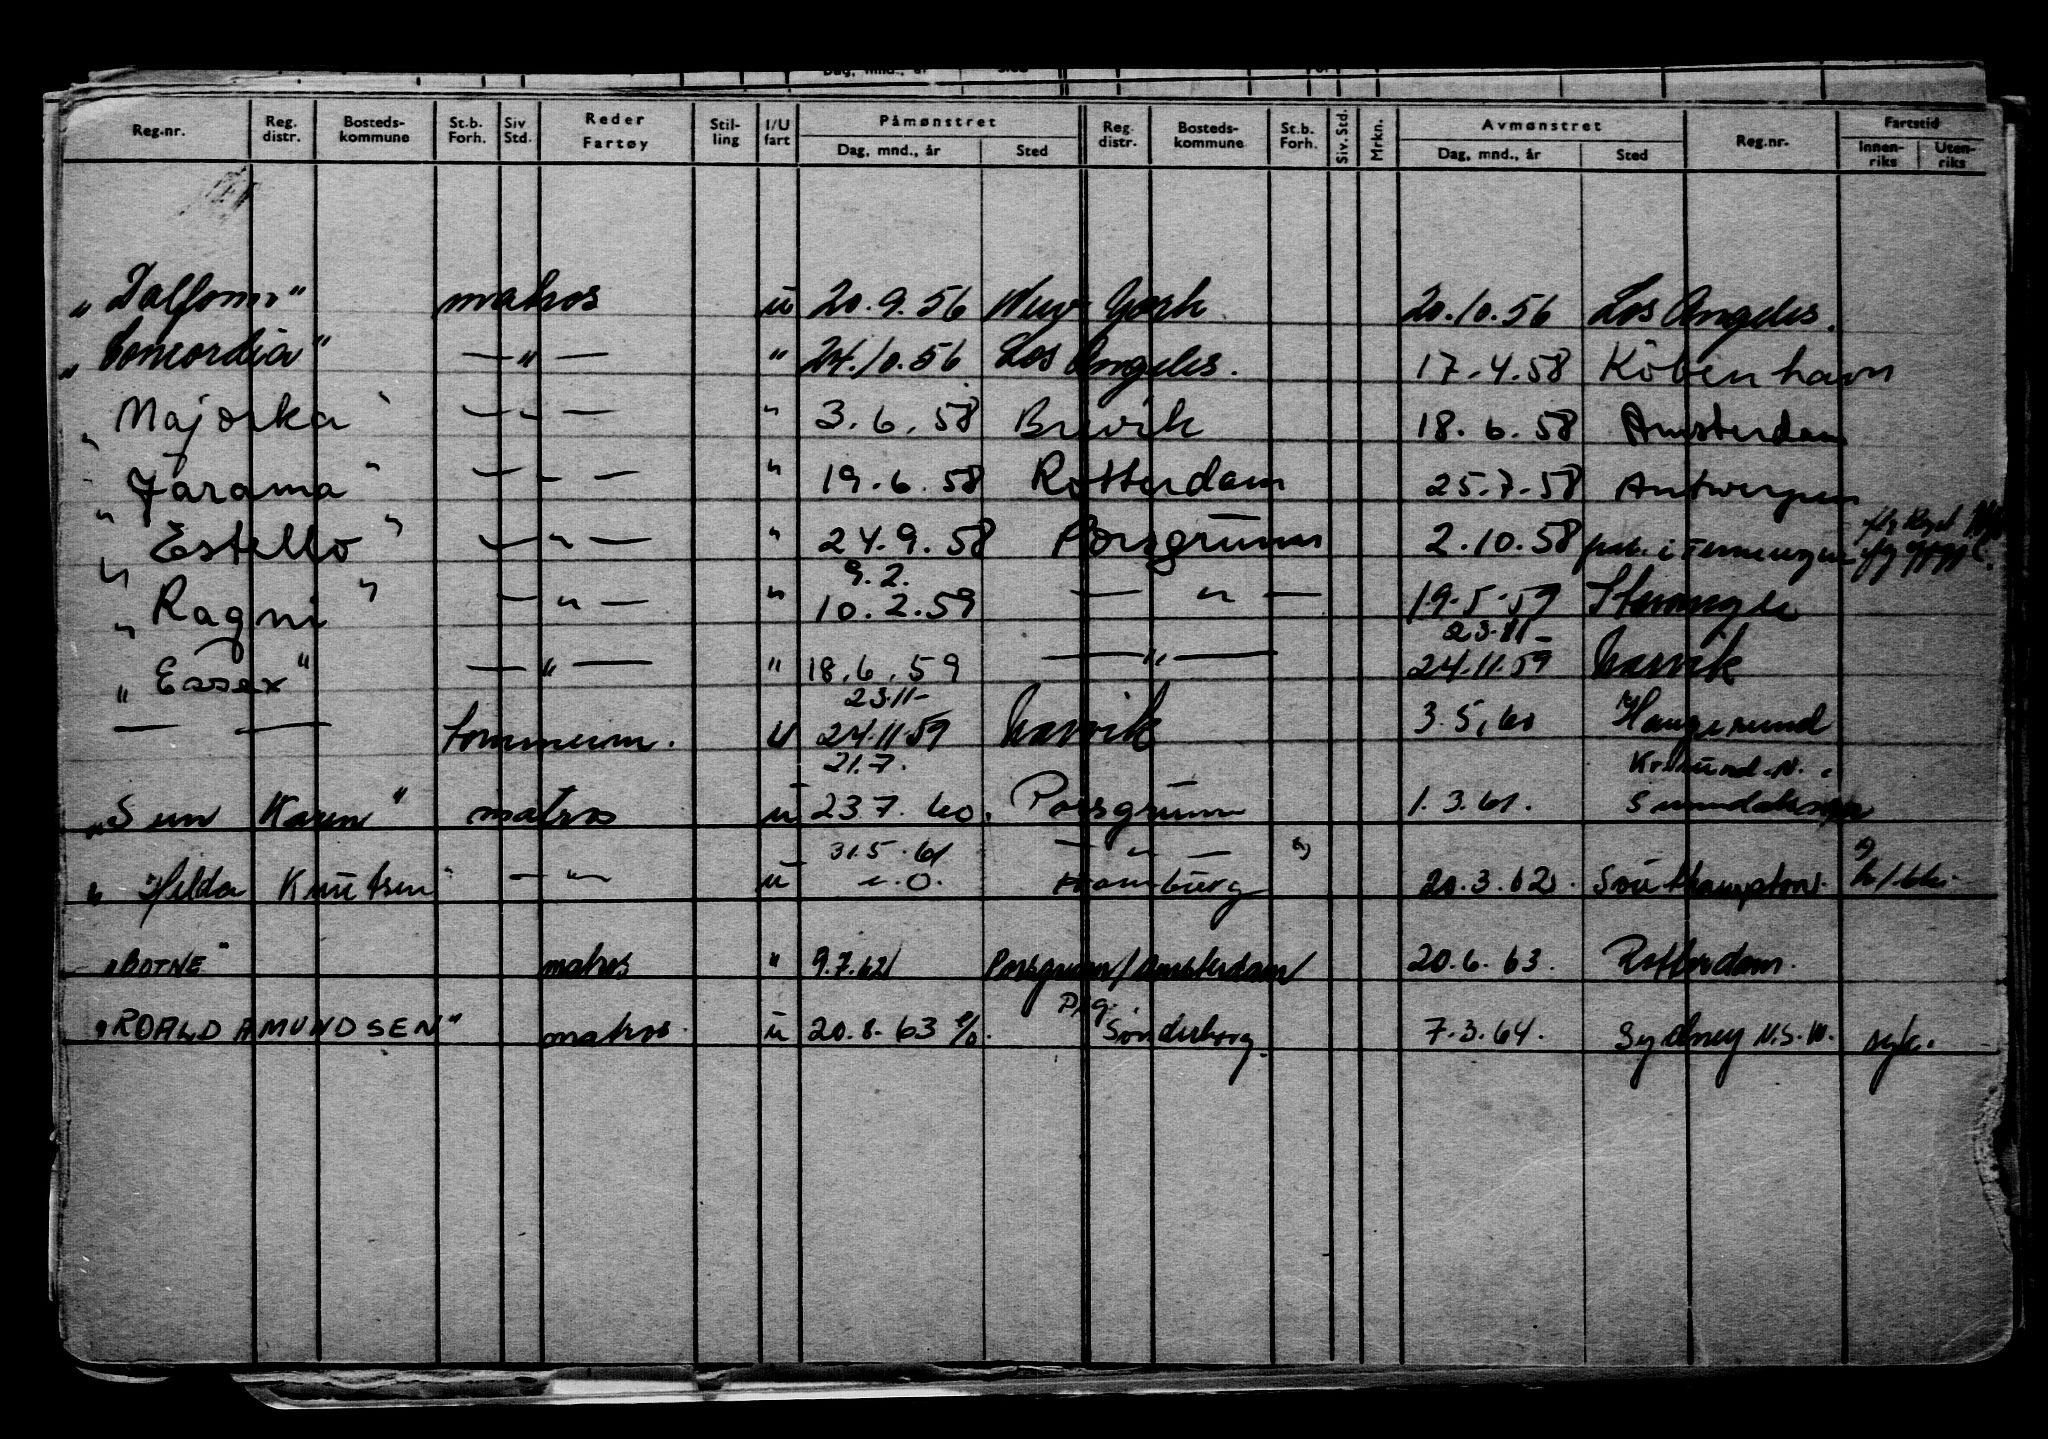 Reg.nr. Reg. distr. Bosteds-kommune St.b. Forh. Siv Std. Reder Fartøy Stil-ling I/U fart Påmønstret Dag, mnd., år Sted Reg. distr. Bosteds-kommune St.b. Forh. Siv. Std. Mrkn. Avmønstret Dag, mnd., år Sted Reg.nr. Fartstid Innen-riks Uten-riks
"Dalfonn" matros u 20.9.56 New York 20.10.56 Los Angeles.
"Concordia" — " — " 24.10.56 Los Angeles. 17.4.58 København
"Majorka" — " — " 3.6.58 Brevik 18.6.58 Amsterdam
"Jarama" — " — " 19.6.58 Rotterdam 25.7.58 Antwerpen
"Estello" — " — " 24.9.58 Porsgrunn 2.10.58
9.2.
"Ragni" — " — " 10.2.59 — " — 19.5.59 Stavanger
23.11-
"Essex" — " — " 18.6.59 — " — 24.11.59 Larvik
23.11-
— — tømmerm. u 24.11.59 Larvik 3.5.60 Haugesund
21.7. Kr.sund.N.
"Sun Karen" matros u 23.7.60. Porsgrunn 1.3.61.
31.5.61 — " —
"Hilda Knutsen" — " — u Hamburg 20.3.62. Southampton.
"BOTNE" matros " 9.7.62/ Porsgrunn/Amsterdam/ 20.6.63. Rotterdam.
P.g.
"ROALD AMUNDSEN" matros. u 20.8.63 Sønderborg. 7.3.64. Sydney N.S.W. syk.